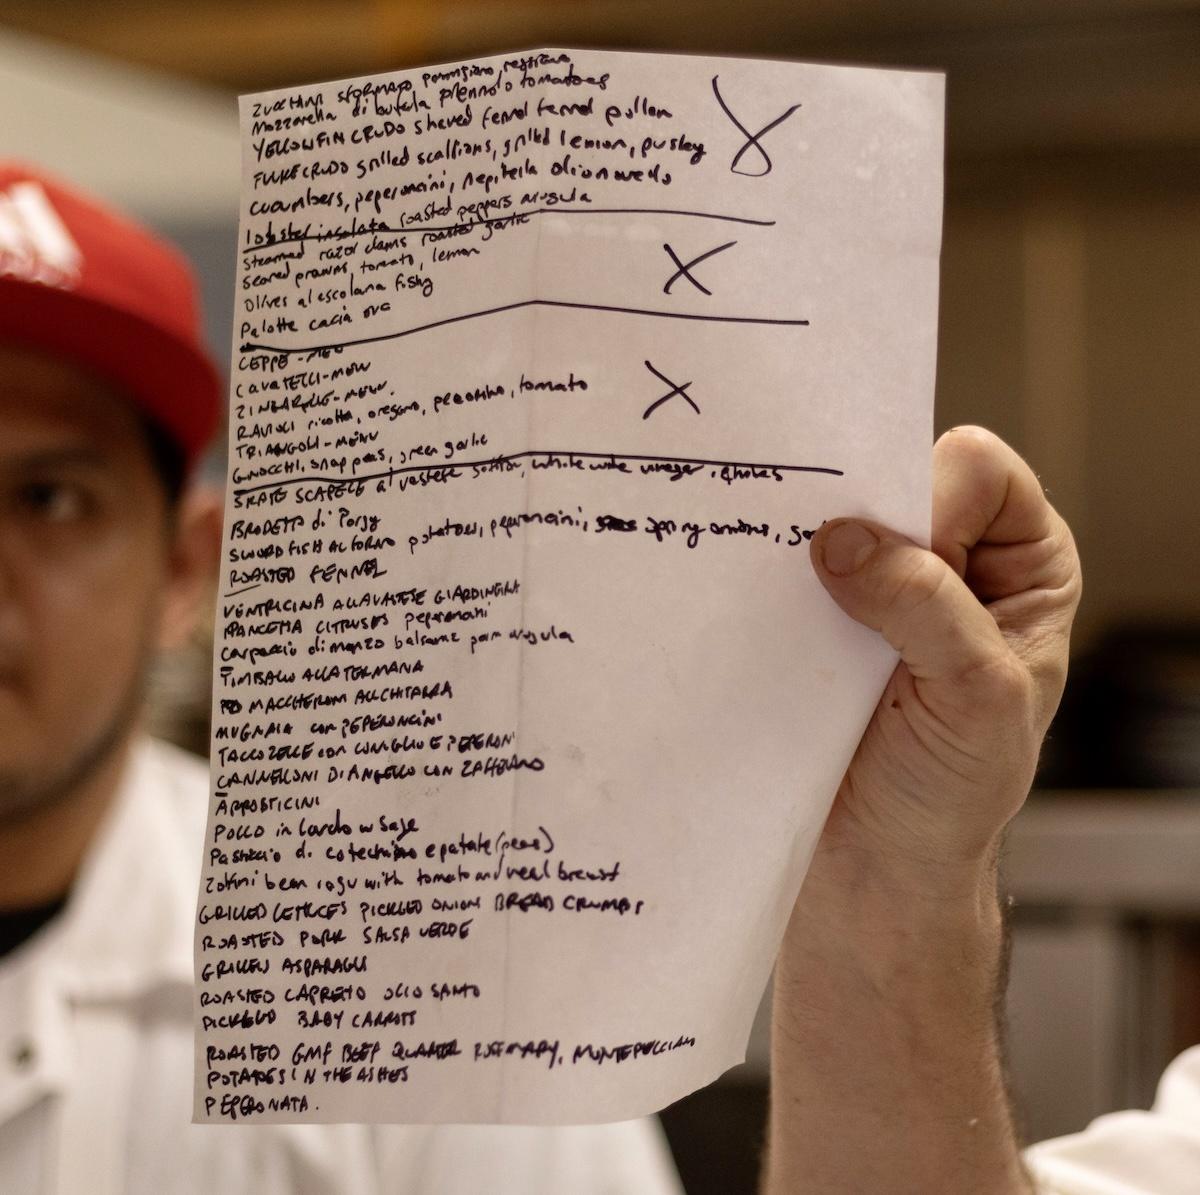 ZUCCHINI SFORMATO parmigiano reggiano
Mozzarella di bufala piennolo tomatoes
YELLOWFIN CRUDO shaved fennel fennel pollen
FLUKE CRUDO grilled scallions, grilled lemon, parsley
cucumbers, peperoncini, nepitella olio nuovo
lobster insalata roasted peppers arugula
steamed razor clams roasted garlic
seared prawns, tomato, lemon
Olives al escolana fishy
Palotte cacia ova
CEPPE - MENU
CAVATELLI - MENU
ZINGARELLE - MENU
RAVIOLI ricotta, oregano, pecorino, tomato
TRIANGOLI - MENU
GNOCCHI, snap peas, green garlic
SKATE SCAPECE al vastese saffron, white wine vinegar,
BRODETTO di Porgy
SWORDFISH AL FORNO potatoes, peperoncini, spring onions,
ROASTED FENNEL
VENTRICINA ALLA VASTESE GIARDINIERA
PANCETTA CITRUSES peperoncini
Carpaccio di manzo balsamic parm arugula
TIMBALLO ALLA TERAMANA
MACCHERONI ALL CHITARRA
MUGNAIA con PEPERONCINI
TACCOZELLE con CONIGLIO E PEPERONI
CANNELLONI DI AGNELLO CON ZAFFERANO
ARROSTICINI
POLLO in lardo w sage
Pasticcio di cotechino e patate (peas)
Zolfini bean ragu with tomato and veal breast
GRILLED LETTUCES PICKLED ONIONS BREAD CRUMBS
ROASTED PORK SALSA VERDE
GRILLED ASPARAGUS
ROASTED CAPRETTO OLIO SANTO
PICKLED BABY CARROTS
ROASTED BEEF QUARTER ROSEMARY, MONTEPULCIANO
POTATOES IN THE ASHES
PEPERONATA.